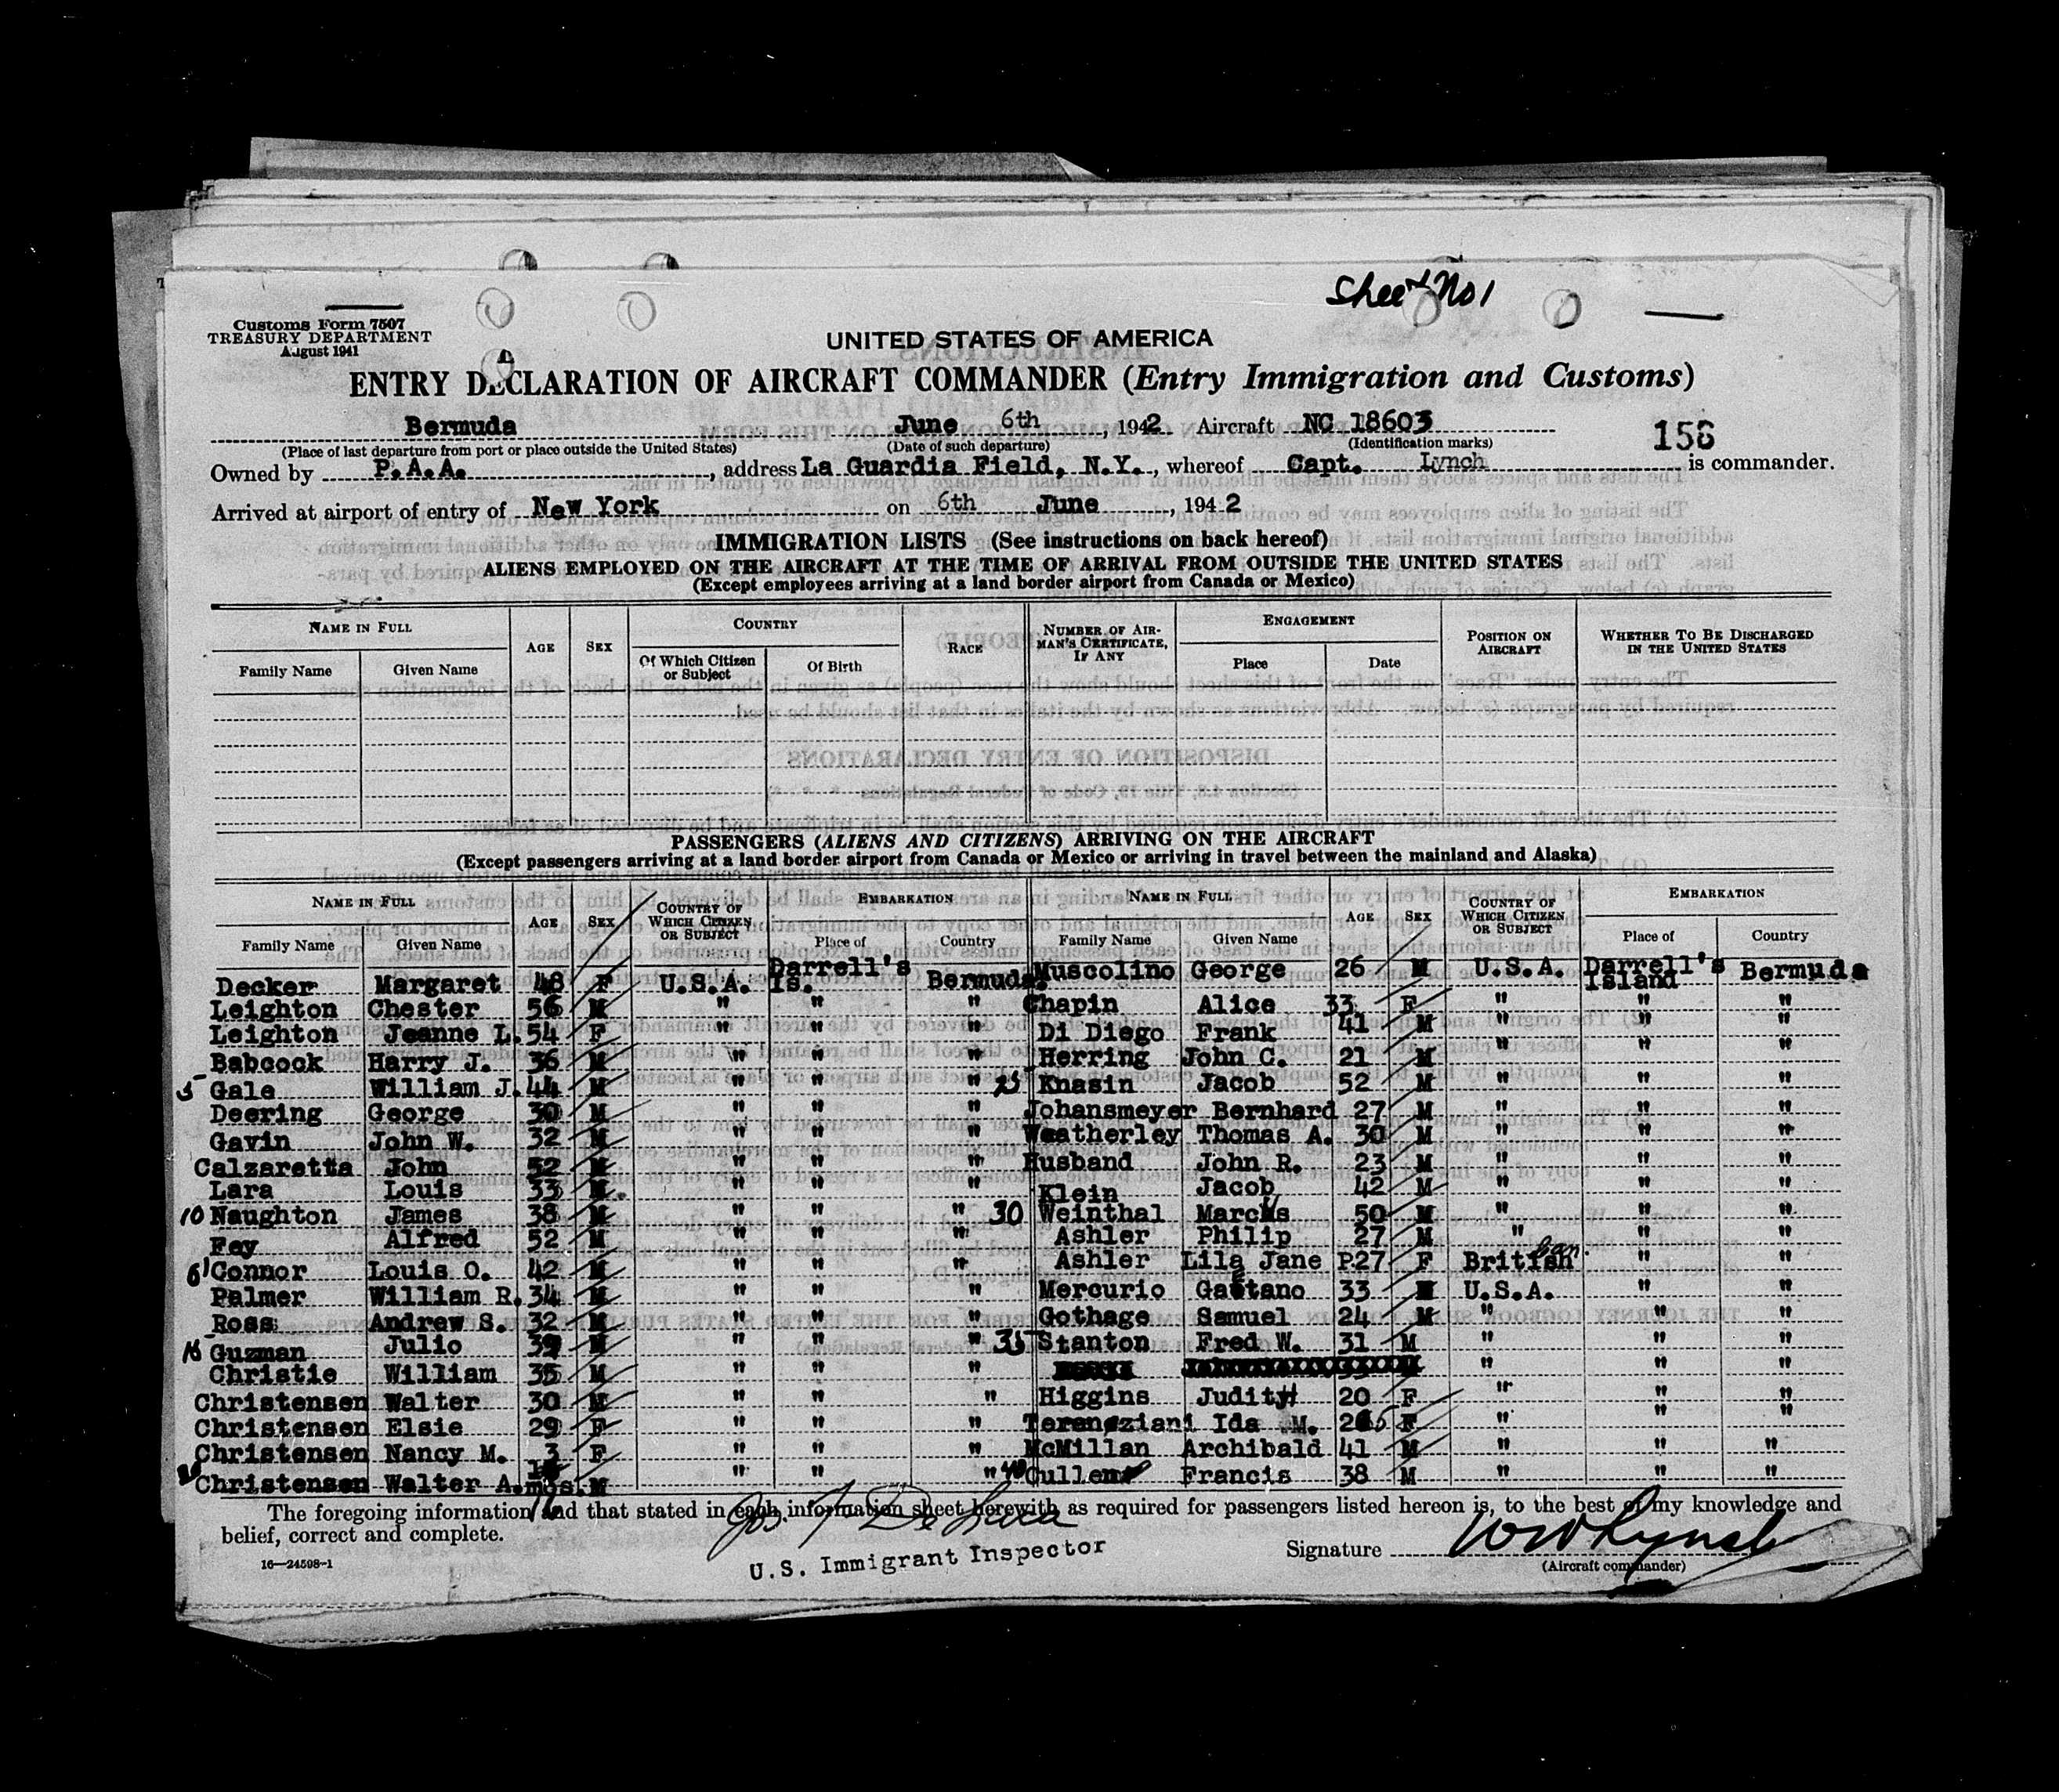 Sheet No 1
Customs Form 7507
TREASURY DEPARTMENT
August 1941
UNITED STATES OF AMERICA
ENTRY DECLARATION OF AIRCRAFT COMMANDER (Entry Immigration and Customs)
Bermuda June 6th, 1942 Aircraft NC 18603
156
(Place of last departure from port or place outside the United States) (Date of such departure) (Identification marks)
Owned by P.A.A., address La Guardia Field, N.Y., whereof Capt. Lynch is commander.
Arrived at airport of entry of New York on 6th June, 1942
IMMIGRATION LISTS (See instructions on back hereof)
ALIENS EMPLOYED ON THE AIRCRAFT AT THE TIME OF ARRIVAL FROM OUTSIDE THE UNITED STATES
(Except employees arriving at a land border airport from Canada or Mexico)
NAME IN FULL AGE SEX COUNTRY RACE NUMBER OF AIRMAN'S CERTIFICATE, IF ANY ENGAGEMENT POSITION ON AIRCRAFT WHETHER TO BE DISCHARGED IN THE UNITED STATES
Family Name Given Name Of Which Citizen or Subject Of Birth Place Date
PASSENGERS (ALIENS AND CITIZENS) ARRIVING ON THE AIRCRAFT
(Except passengers arriving at a land border airport from Canada or Mexico or arriving in travel between the mainland and Alaska)
NAME IN FULL AGE SEX COUNTRY OF WHICH CITIZEN OR SUBJECT EMBARKATION NAME IN FULL AGE SEX COUNTRY OF WHICH CITIZEN OR SUBJECT EMBARKATION
Family Name Given Name Place of Country Family Name Given Name Place of Country
Decker Margaret 48 F U.S.A. Darrell's Is. Bermuda. Muscolino George 26 M U.S.A. Darrell's Island Bermuda
Leighton Chester 56 M " " " Chapin Alice 33 F " " "
Leighton Jeanne L. 54 F " " " Di Diego Frank 41 M " " "
Babcock Harry J. 36 M " " " Herring John C. 21 M " " "
5 Gale William J. 44 M " " " 25 Knasin Jacob 52 M " " "
Deering George 30 M " " " Johansmeyer Bernhard 27 M " " "
Gavin John W. 32 M " " " Weatherley Thomas A. 30 M " " "
Calzaretta John 52 M " " " Husband John R. 23 M " " "
Lara Louis 33 M " " " Klein Jacob 42 M " " "
10 Naughton James 38 M " " " 30 Weinthal Marcus 50 M " " "
Fey Alfred 52 M " " " Ashler Philip 27 M " " "
O'Connor Louis O. 42 M " " " Ashler Lila Jane P. 27 F British " "
Palmer William R. 34 M " " " Mercurio Gaetano 33 M U.S.A. " "
Ross Andrew S. 32 M " " " Gothage Samuel 24 M " " "
15 Guzman Julio 39 M " " " 35 Stanton Fred W. 31 M " " "
Christie William 35 M " " " " " "
Christensen Walter 30 M " " " Higgins Judith 20 F " " "
Christensen Elsie 29 F " " " Terenziani Ida M. 26 F " " "
Christensen Nancy M. 3 F " " " McMillan Archibald 41 M " " "
20 Christensen Walter A. mos. M " " " 40 Cullen Francis 38 M " " "
The foregoing information and that stated in each information sheet herewith as required for passengers listed hereon is, to the best of my knowledge and
belief, correct and complete.
16—24598-1
U.S. Immigrant Inspector
Signature W W Lynch
(Aircraft commander)